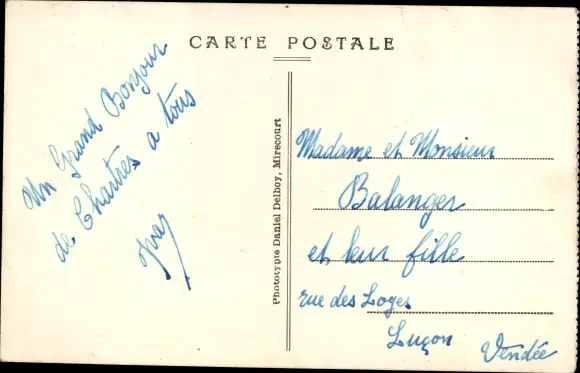 CARTE POSTALE
Un Grand Bonjour
de Chartres a tous
Phototypie Daniel Delboy, Mirecourt
Madame et Monsieur
Balanger
et leur fille
rue des Loges
Luçon Vendée